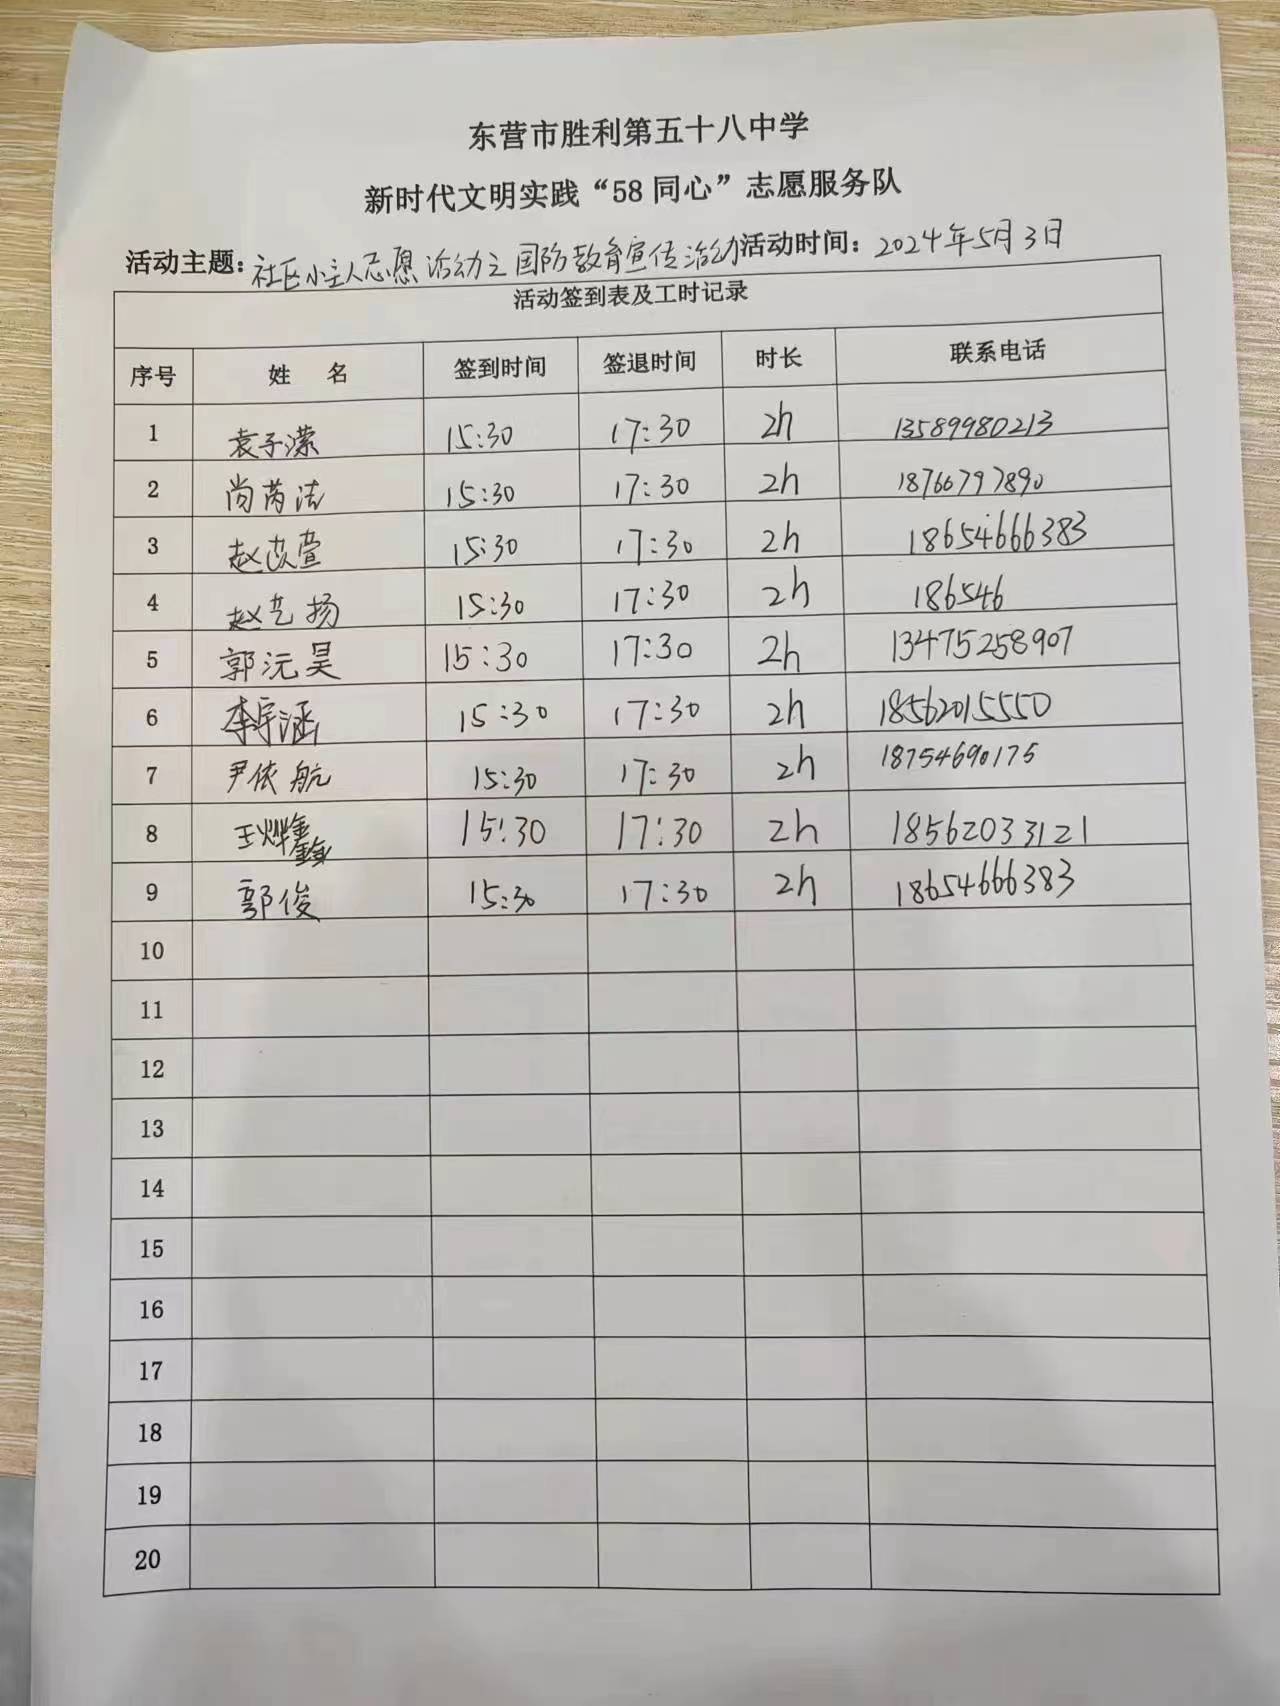 东营市胜利第五十八中学
新时代文明实践“58 同心”志愿服务队
活动主题：社区小主人志愿活动之国防教育宣传活动 活动时间：2024年5月3日
活动签到表及工时记录
序号 姓 名 签到时间 签退时间 时长 联系电话
1 袁子潆 15:30 17:30 2h 13589980213
2 尚芮洁 15:30 17:30 2h 18766797890
3 赵 萱 15:30 17:30 2h 18654666383
4 赵艺扬 15:30 17:30 2h 186546
5 郭沅昊 15:30 17:30 2h 13475258907
6 李宇涵 15:30 17:30 2h 18562015550
7 尹依航 15:30 17:30 2h 18754690175
8 王烨鑫 15:30 17:30 2h 18562033121
9 郭俊 15:30 17:30 2h 18654666383
10
11
12
13
14
15
16
17
18
19
20